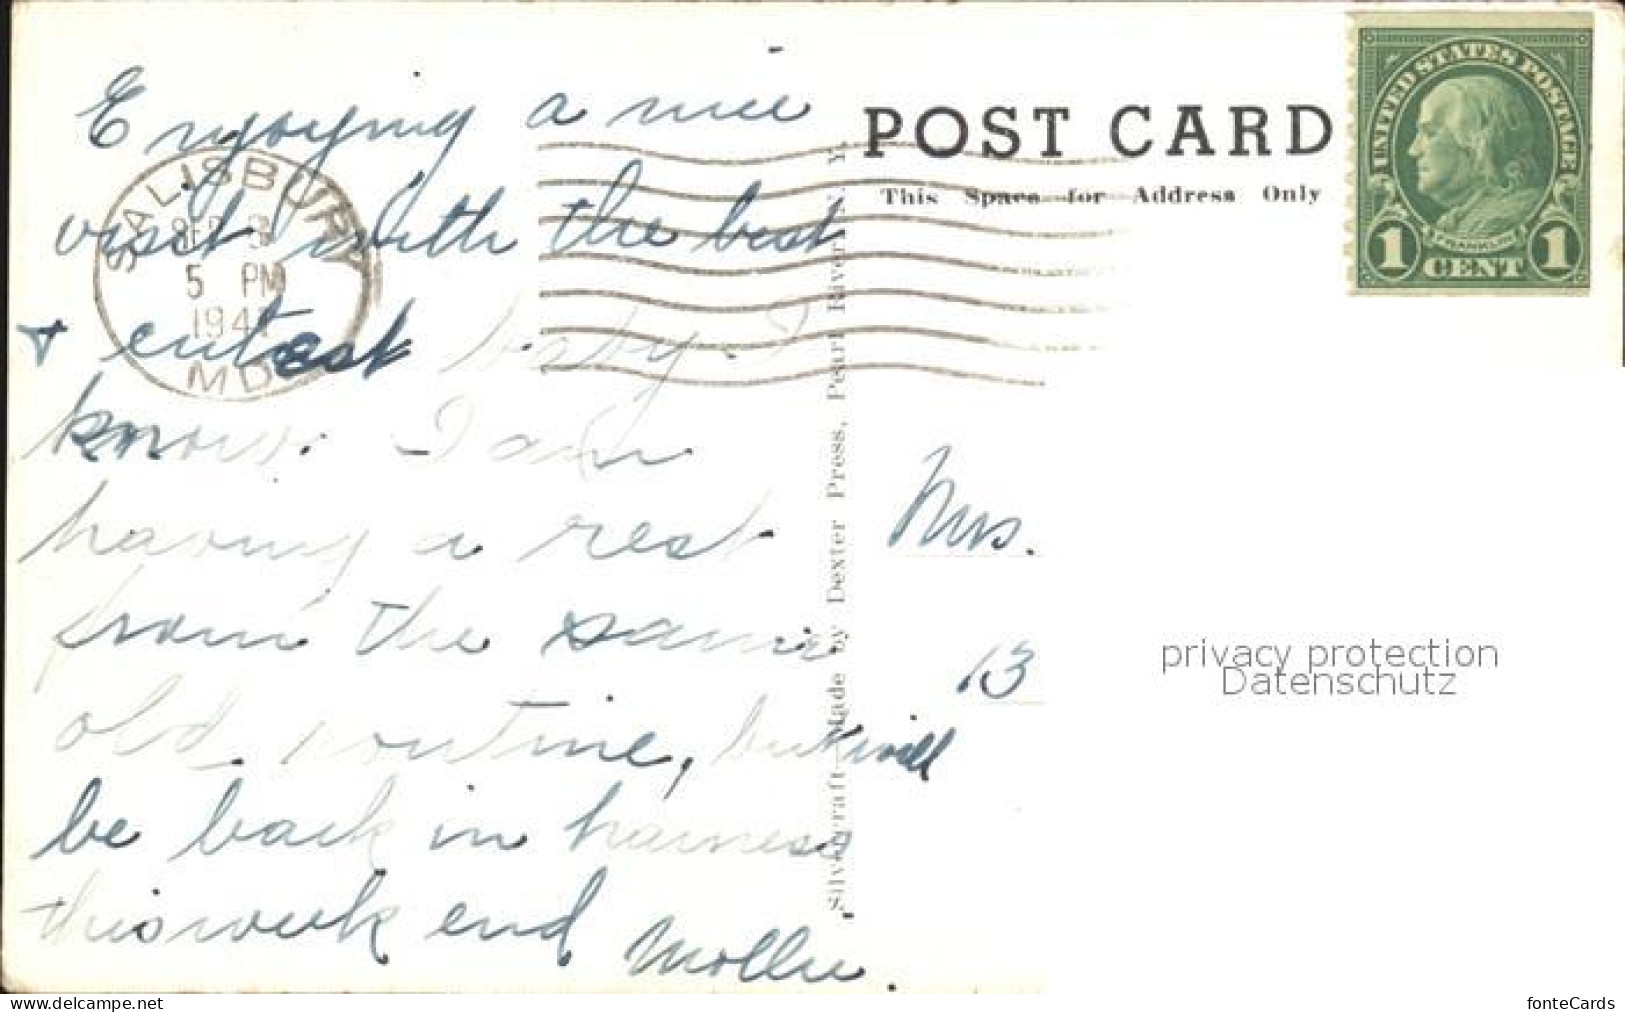 Enjoying a nice
visit with the best
+ cutest baby I
know. I am
having a rest
from the same
old routine, but will
be back in harness
this week end Mollie.
SALISBURY
SEP 3
5 PM
194
MD
POST CARD
This Space for Address Only
UNITED STATES POSTAGE
FRANKLIN
1 CENT 1
Silvercraft—Made by Dexter Press, Pearl River, N. Y.
Mrs.
13
privacy protection
Datenschutz
fonteCards